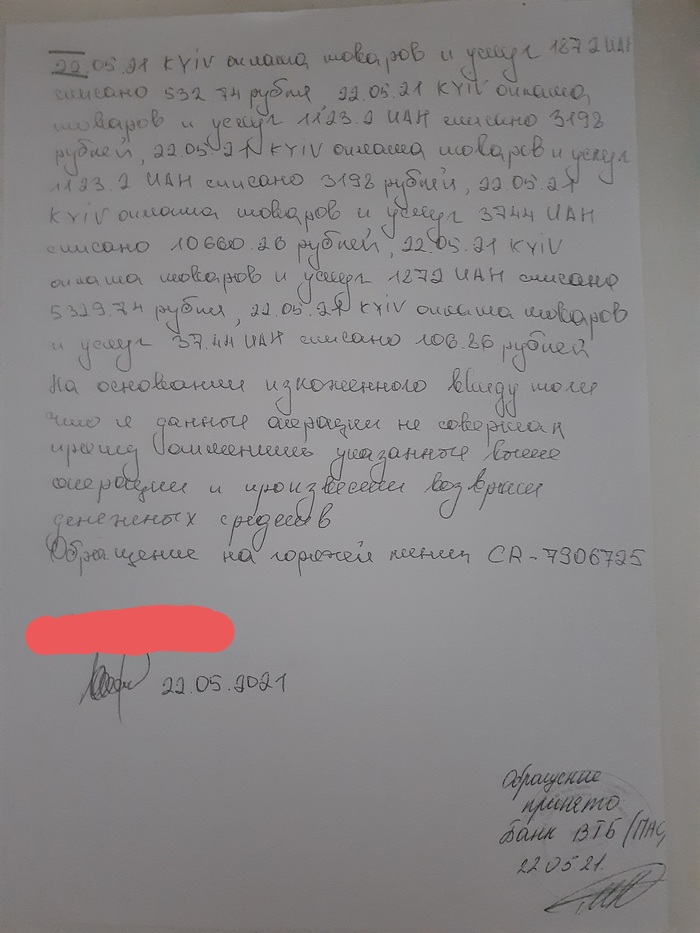 22.05.21 KYiV оплата товаров и услуг 1872 UAH
списано 532 74 рубля, 22.05.21 KYiV оплата
товаров и услуг 1123.2 UAH списано 3198
рублей, 22.05.21 KYiV оплата товаров и услуг
1123.2 UAH списано 3198 рублей, 22.05.21
KYiV оплата товаров и услуг 3744 UAH
списано 10660.26 рублей, 22.05.21 KYiV
оплата товаров и услуг 1872 UAH списано
5329.74 рубля, 22.05.21 KYiV оплата товаров
и услуг 37.44 UAH списано 106.86 рублей
На основании изложенного ввиду того
что я данные операции не совершал
прошу отменить указанные выше
операции и произвести возврат
денежных средств
Обращение на горячей линии CR-7906725
22.05.2021
Обращение
принято
Банк ВТБ (ПАО)
22 05 21.